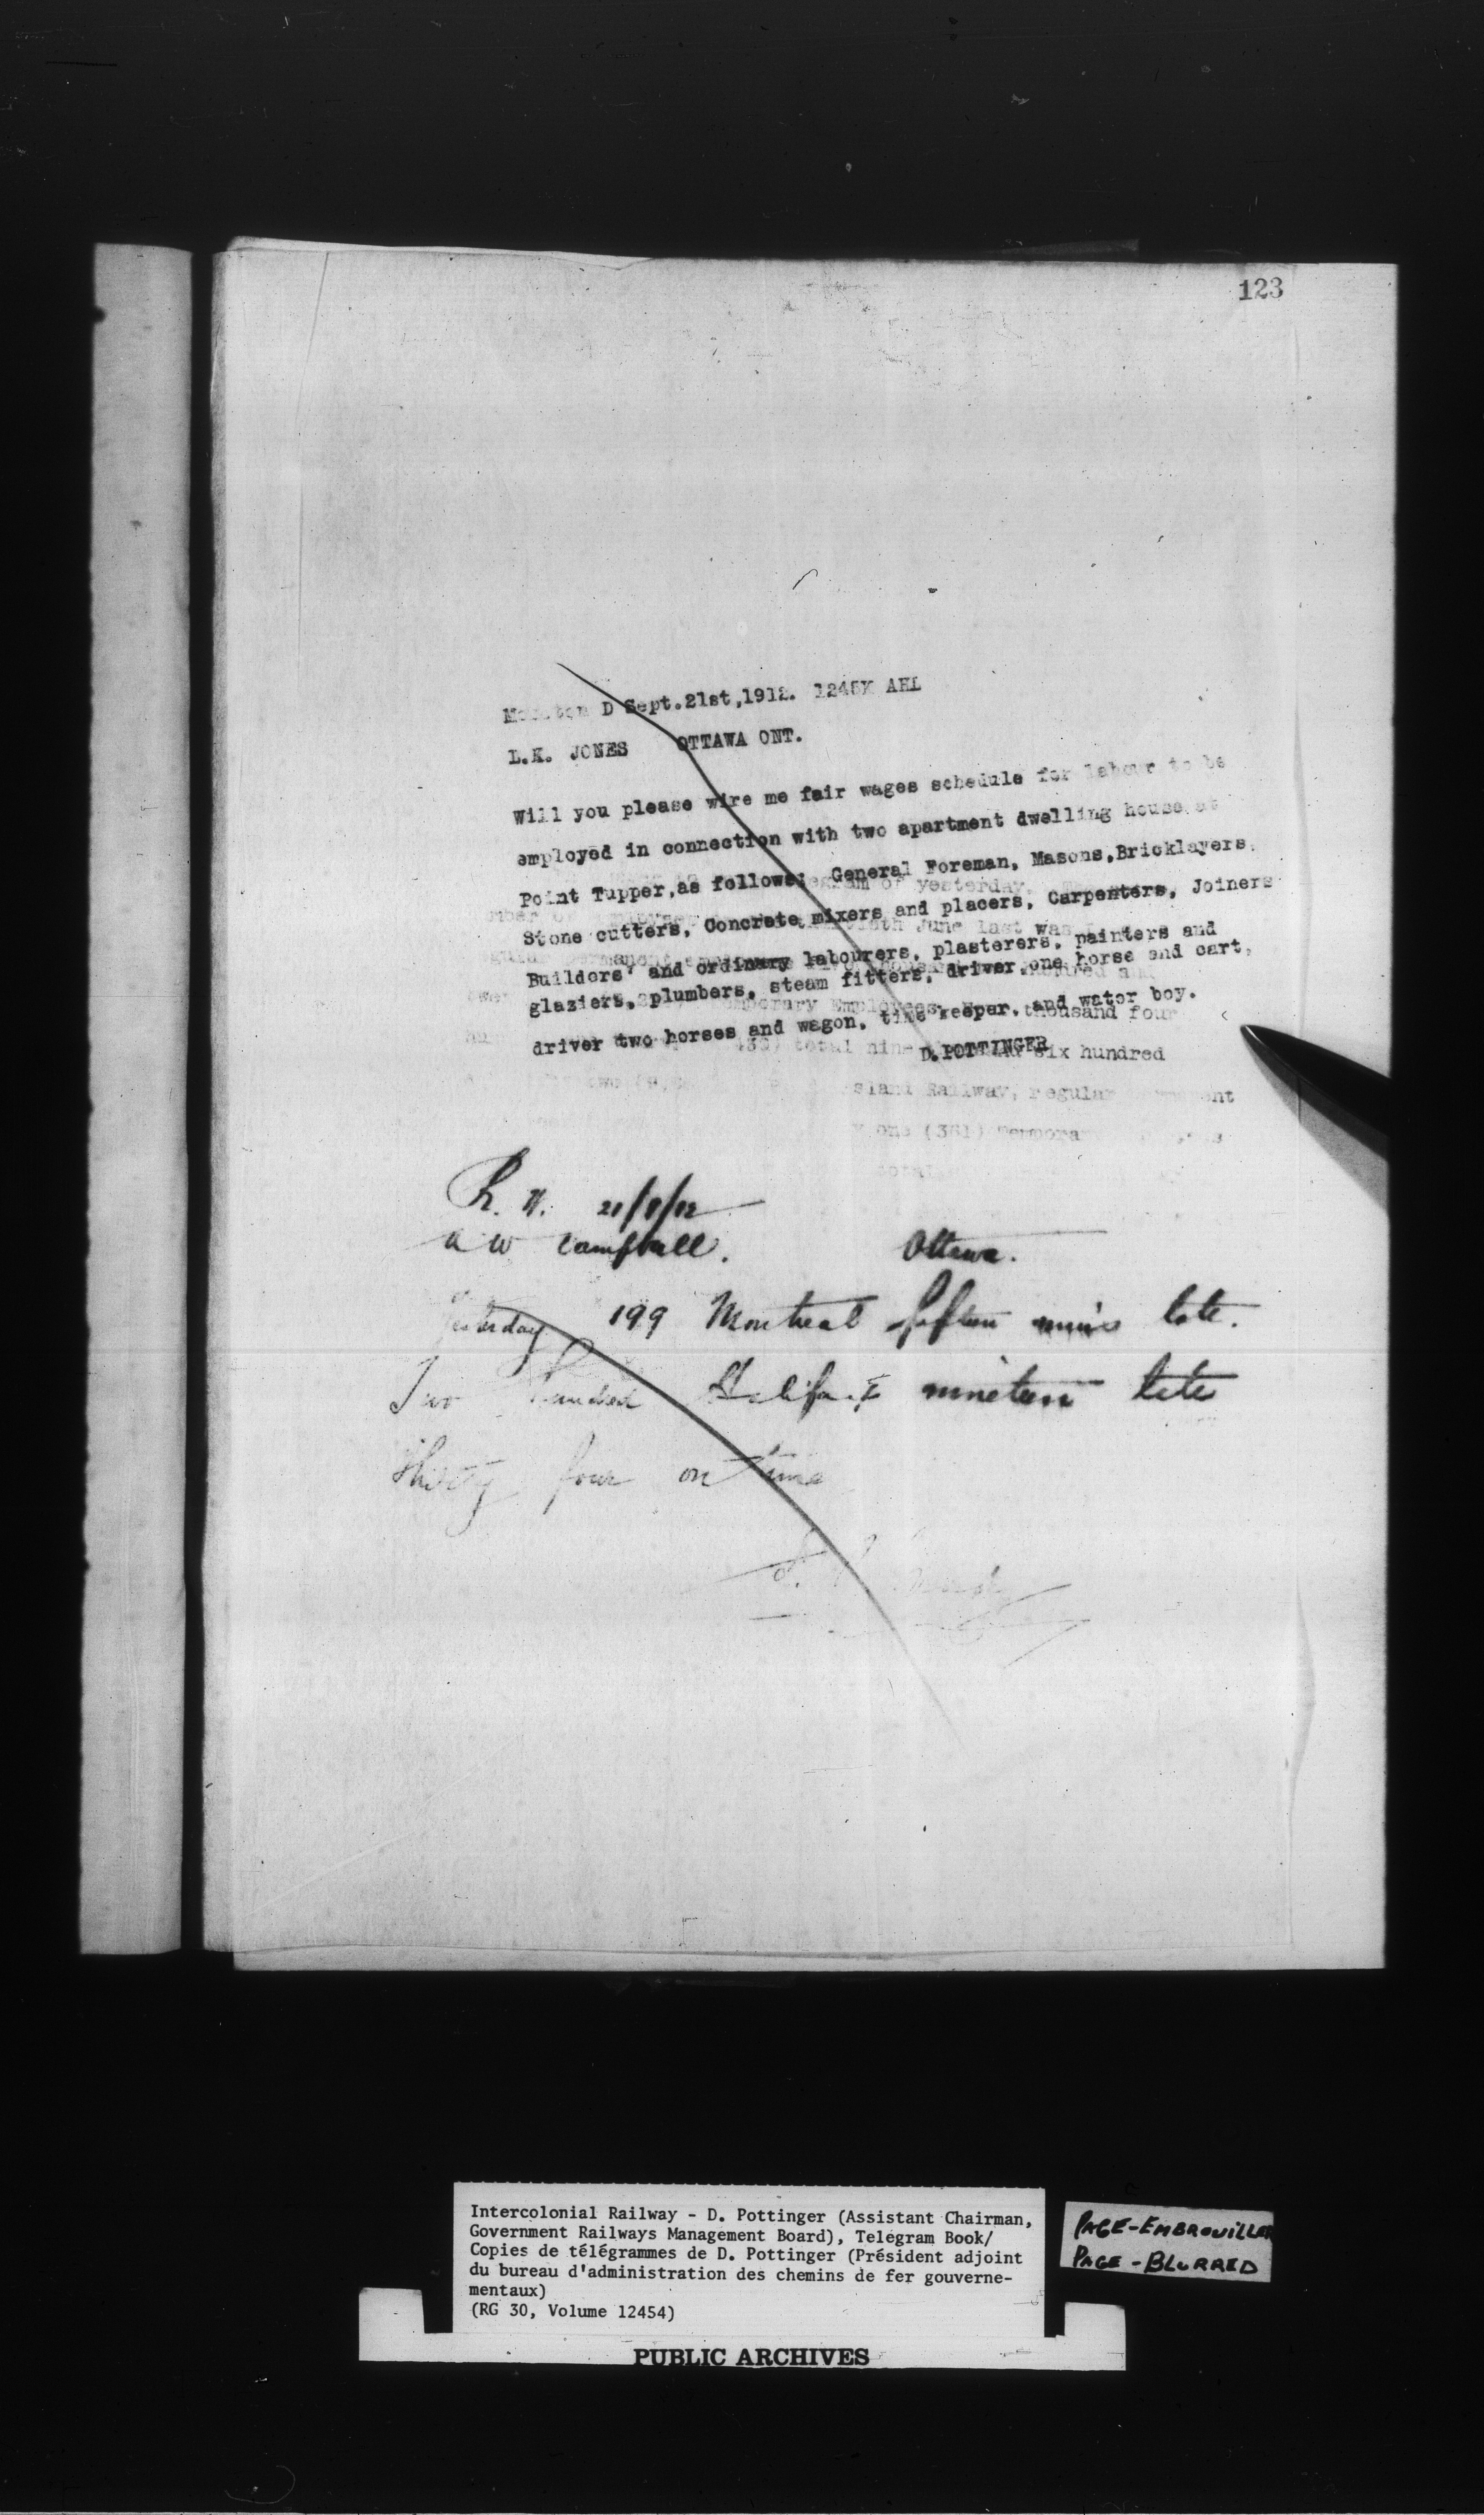 123
Moncton D Sept.21st,1912. 1245K AHL
L.K. JONES OTTAWA ONT.
Will you please wire me fair wages schedule for labour to be
employed in connection with two apartment dwelling house at
Point Tupper,as follows: General Foreman, Masons,Bricklayers,
Stone cutters, Concrete mixers and placers, Carpenters, Joiners
Builders' and ordinary labourers, plasterers, painters and
glaziers, plumbers, steam fitters, driver one horse and cart,
driver two horses and wagon, time keeper, and water boy.
D.POTTINGER
egram of yesterday.
June last was
Employees thousand four
total nine six hundred
sland Railway, regular
one (361)
total
A W Campbell. Ottawa.
Yesterday 199 Montreal fifteen mins late.
Two hundred Halifax nineteen late
thirty four on time
Intercolonial Railway - D. Pottinger (Assistant Chairman,
Government Railways Management Board), Telegram Book/
Copies de télégrammes de D. Pottinger (Président adjoint
du bureau d'administration des chemins de fer gouverne-
mentaux)
(RG 30, Volume 12454)
PUBLIC ARCHIVES
PAGE-EMBROUILLER
PAGE-BLURRED